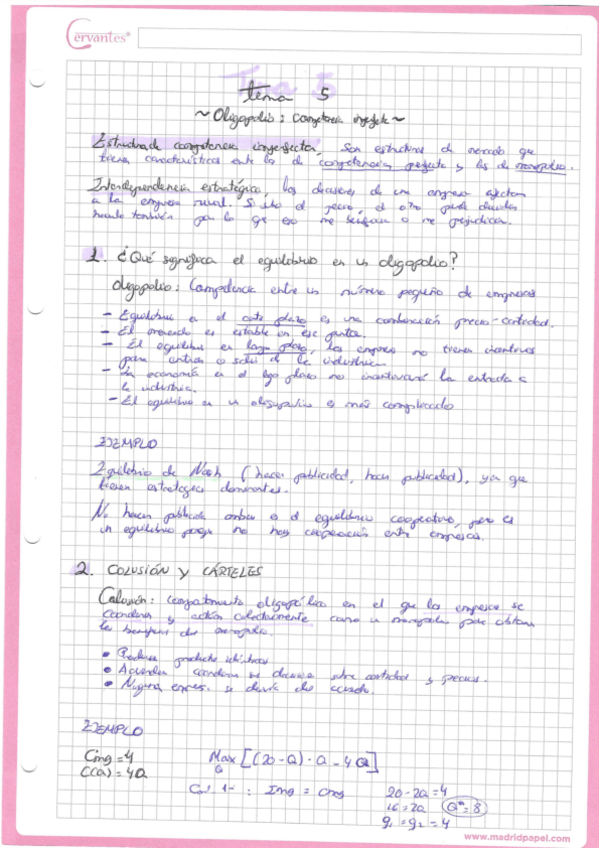 Cervantes
Tema 5
~ Oligopolio: Competencia imperfecta ~
Estructura de competencia imperfecta, Son estructuras de mercado que
tienen características entre los de competencia perfecta y los de monopolio.
Interdependencia estratégica, las decisiones de una empresa afectan
a la empresa rival. Si sube el precio, el otro puede decidir
también por lo que eso me beneficia o me perjudica.
1. ¿Qué significa el equilibrio en un oligopolio?
Oligopolio: Competencia entre un número pequeño de empresas
- Equilibrio a el corto plazo es una combinación precio-cantidad.
- El mercado es estable en ese punto.
- El equilibrio es largo plazo, las empresas no tienen incentivos
para entrar o salir de la industria.
- La economía en el largo plazo no incentivará la entrada a
la industria.
- El equilibrio en un oligopolio es más complicado
EJEMPLO
Equilibrio de Nash (hacer publicidad, hacer publicidad), ya que
tienen estrategias dominantes.
No hacer publicidad ambos es el equilibrio cooperativo, pero es
un equilibrio porque no hay cooperación entre empresas.
2. COLUSIÓN Y CÁRTELES
Colusión: Comportamiento oligopólico en el que las empresas se
coordinan y actúan colectivamente como un monopolio para obtener
los beneficios del monopolio.
• Producen productos idénticos
• Acuerdan coordinar sus decisiones sobre cantidad y precios.
• Ninguna empresa se desvía del acuerdo.
EJEMPLO
Cmg = 4
C(Q) = 4Q
Max [(20 - Q) · Q - 4Q]
Q
: Img = Cmg
20 - 2Q = 4
16 = 2Q Q* = 8
q1 = q2 = 4
www.madridpapel.com